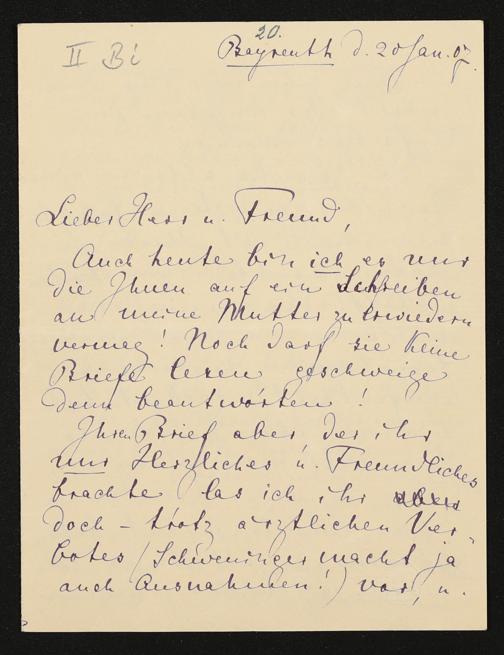 20.
II Bi
Bayreuth d. 20 Jan. 07.
Lieber Herr u. Freund,
Auch heute bin ich es nur
die Ihnen auf ein Schreiben
an meine Mutter zu erwiedern
vermag! Noch darf sie keine
Briefe lesen geschweige
denn beantworten!
Ihren Brief aber, der ihr
nur Herzliches u. Freundliches
brachte las ich ihr
doch – trotz ärztlichen Ver-
botes (Schweninger macht ja
auch Ausnahmen!) vor, u.